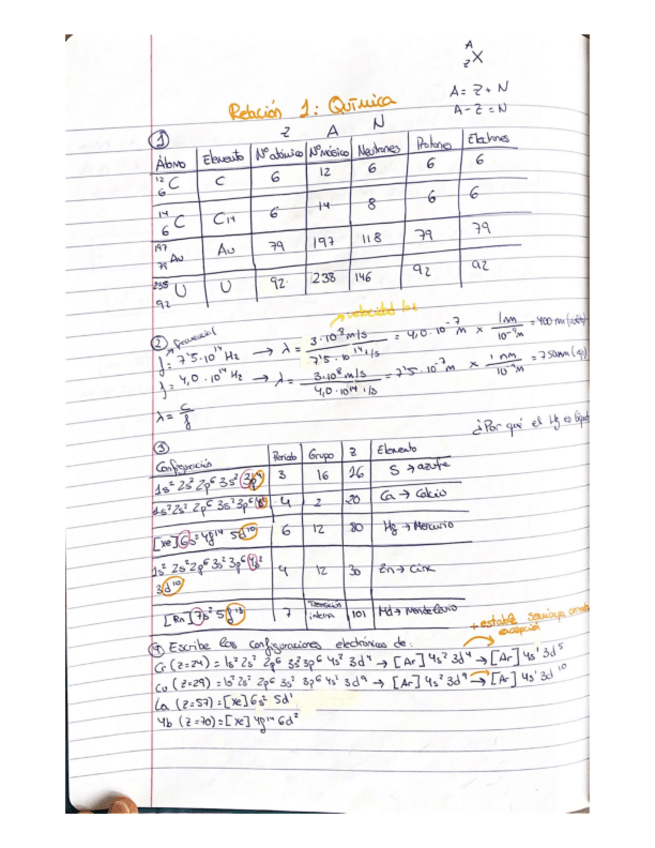 A
Z X
A = Z + N
A - Z = N
Relación 1: Química
Z A N
①
Átomo Elemento Nº atómico Nº másico Neutrones Protones Electrones
12 6 C C 6 12 6 6 6
14 6 C C14 6 14 8 6 6
197 79 Au Au 79 197 118 79 79
238 92 U U 92 238 146 92 92
→ velocidad luz
②
f = 7'5·10¹⁴ Hz → λ = 3·10⁸ m/s / 7'5·10¹⁴ 1/s = 4,0·10⁻⁷ m × 1 nm / 10⁻⁹ m = 400 nm
f = 4,0·10¹⁴ Hz → λ = 3·10⁸ m/s / 4,0·10¹⁴ 1/s = 7'5·10⁻⁷ m × 1 nm / 10⁻⁹ m = 750 nm
λ = c / f
¿Por qué el Hg es
③
Configuración Periodo Grupo Z Elemento
1s² 2s² 2p⁶ 3s² 3p⁴ 3 16 16 S → azufre
1s² 2s² 2p⁶ 3s² 3p⁶ 4s² 4 2 20 Ca → Calcio
[Xe] 6s² 4f¹⁴ 5d¹⁰ 6 12 80 Hg → Mercurio
1s² 2s² 2p⁶ 3s² 3p⁶ 4s² 4 12 30 Zn → Cinc
3d¹⁰
[Rn] 7s² 5f¹³ 7 Transición interna 101 Md → Mendelevio
+ estable
excepción
④ Escribe las configuraciones electrónicas de:
Cr (Z=24) = 1s² 2s² 2p⁶ 3s² 3p⁶ 4s² 3d⁴ → [Ar] 4s² 3d⁴ → [Ar] 4s¹ 3d⁵
Cu (Z=29) = 1s² 2s² 2p⁶ 3s² 3p⁶ 4s² 3d⁹ → [Ar] 4s² 3d⁹ → [Ar] 4s¹ 3d¹⁰
La (Z=57) = [Xe] 6s² 5d¹
Yb (Z=70) = [Xe] 4f¹⁴ 6d²